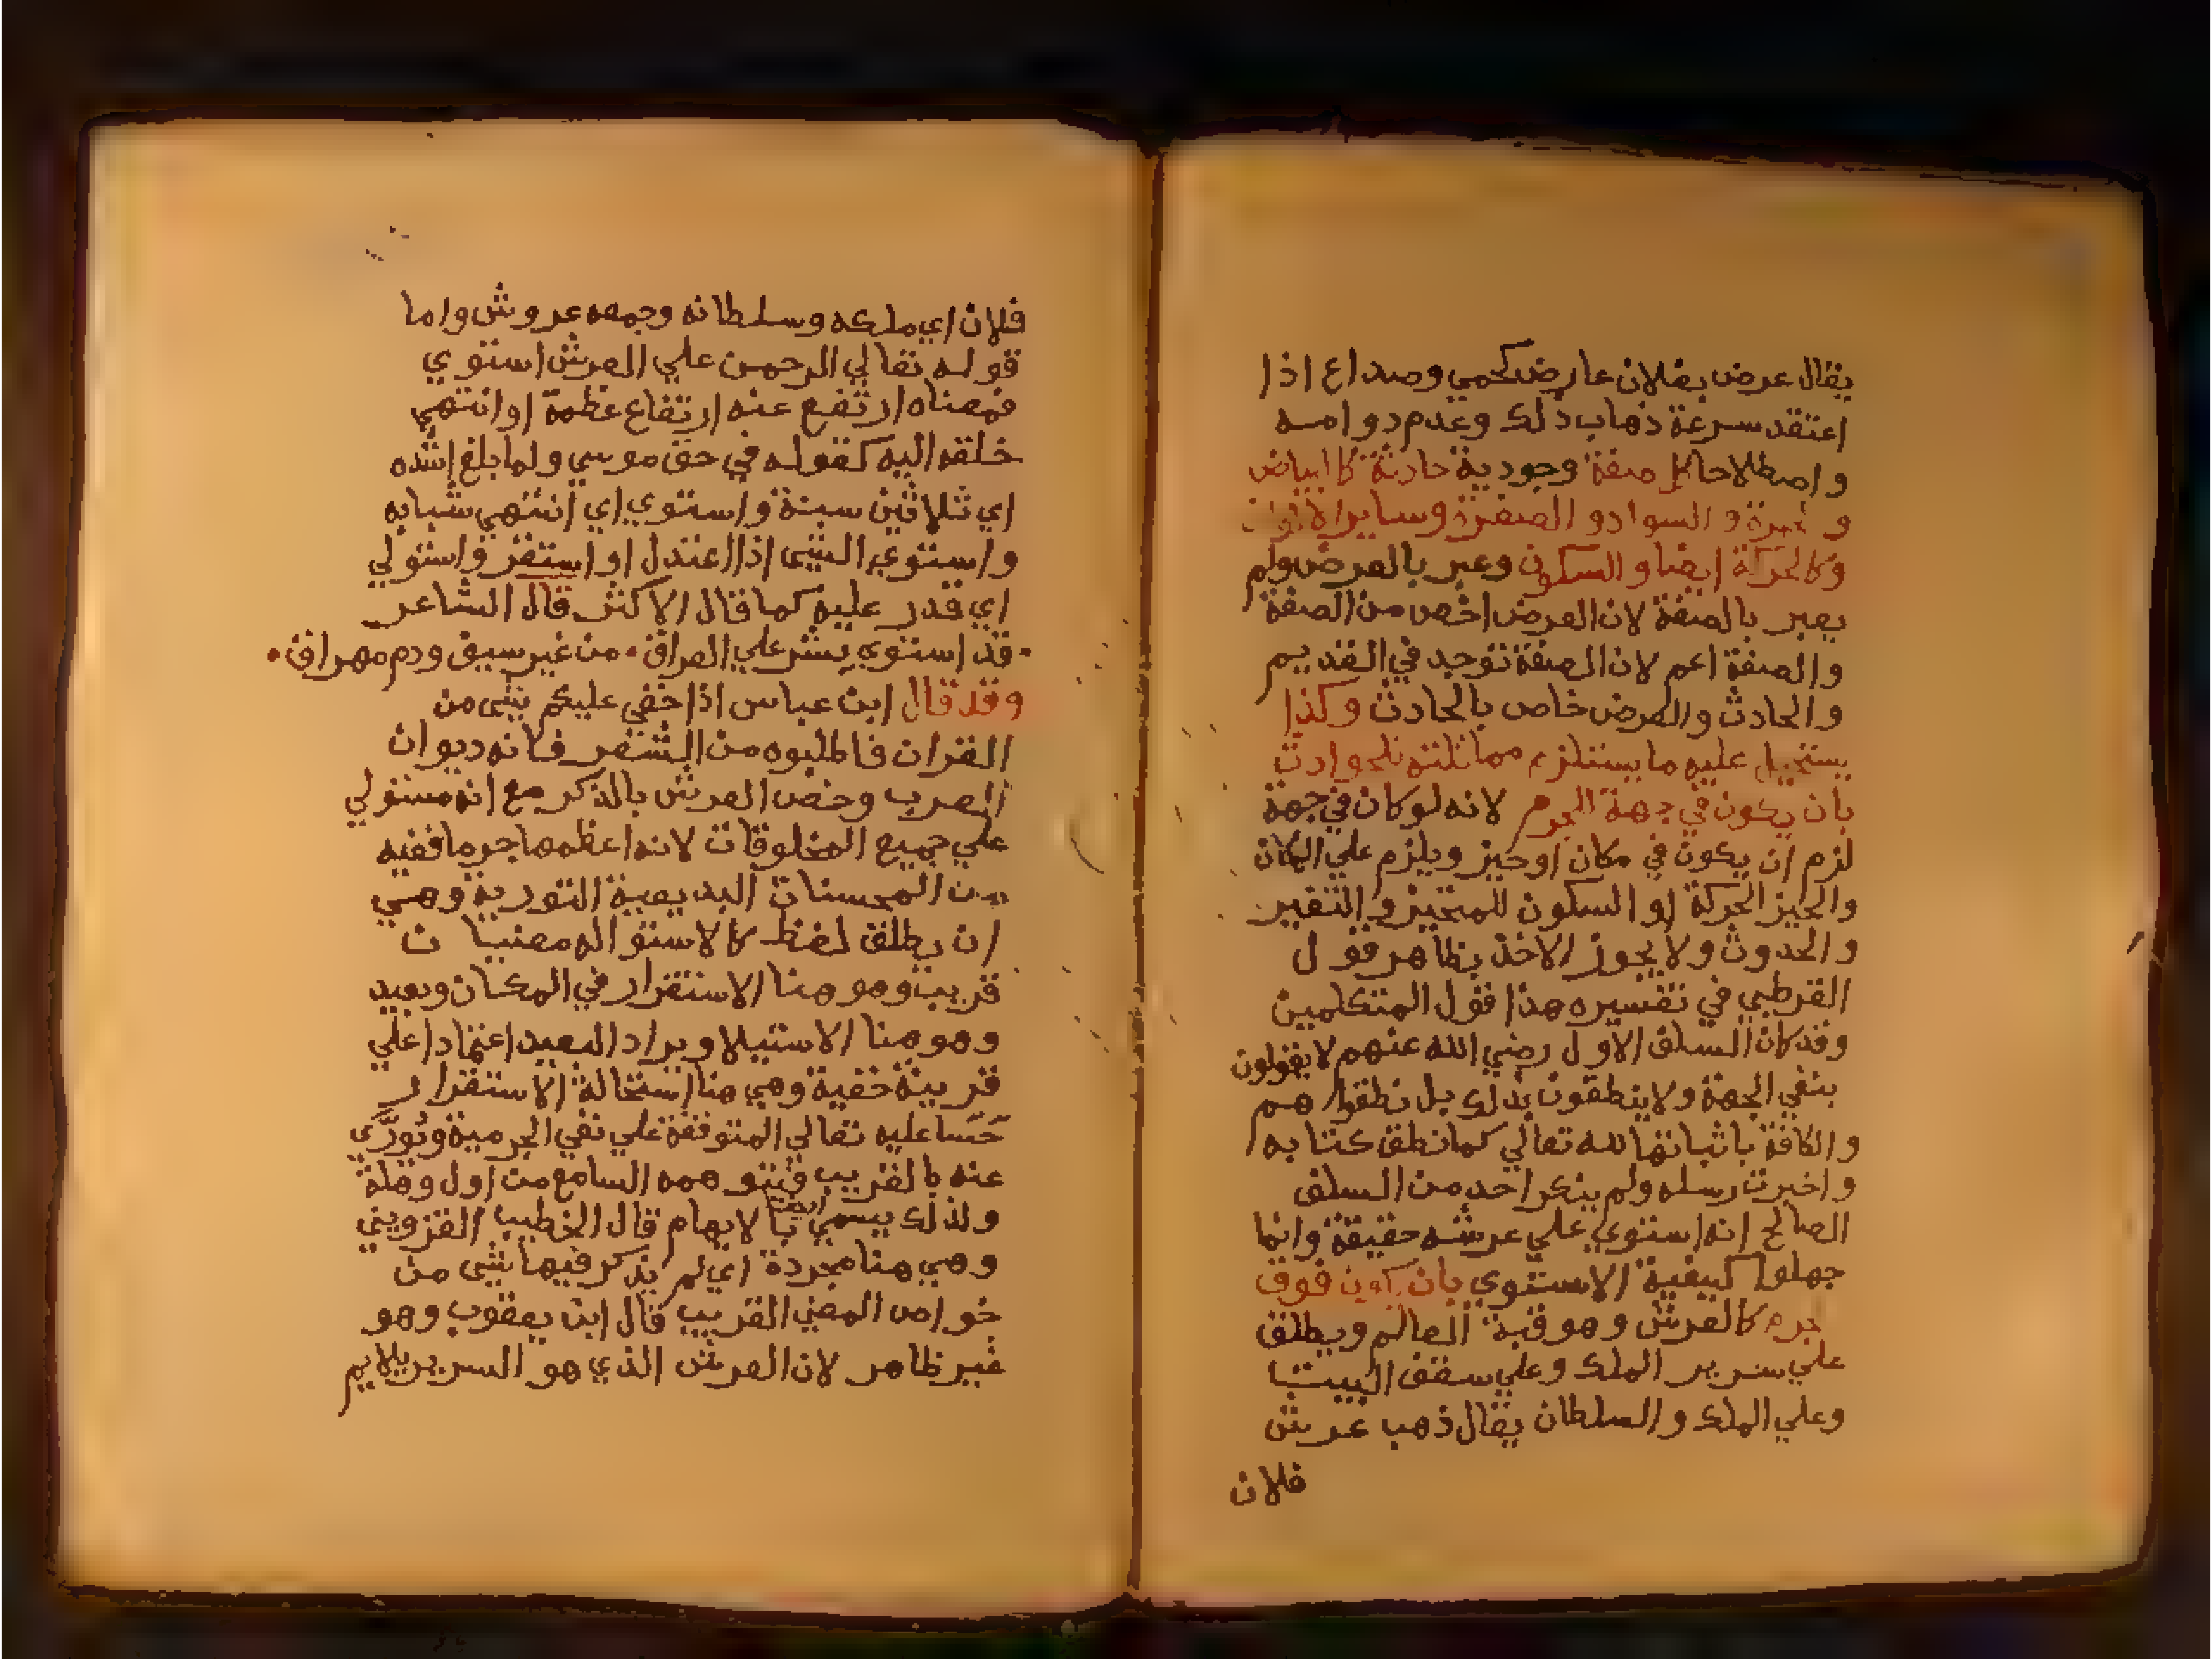 يقال عرض بفلان عارض كحمي وصداع اذا
اعتقد سرعة ذهاب ذلك وعدم دوامه
واصطلاحا كل صفة وجودية حادثة كالبياض
و والسواد و الصفرة وساير الالوان
وكالحركة ايضا والسكون وعبر بالعرض ولم
يعبر بالصفة لان العرض اخص من الصفة
والصفة اعم لان الصفة توجد في القديم
والحادث والعرض خاص بالحادث وكذا
يستحيل عليه ما يستلزم مماثلته للحوادث
بان يكون في جهة الجرم لانه لو كان في جهة
لزم ان يكون في مكان او حيز ويلزم علي المكان
والحيز الحركة او السكون للمتحيز والتغير
والحدوث ولا يجوز الاخذ بظاهر قول
القرطبي في تفسيره هذا قول المتكلمين
وقد كان السلف الاول رضي الله عنهم لا يقولون
بنفي الجهة ولا ينطقون بذلك بل نطقوا هم
والكافة باثباتها لله تعالي كما نطق كتابه
واخبرت رسله ولم ينكر احد من السلف
الصالح انه استوي علي عرشه حقيقة وانما
جهلوا كيفية الاستوي بان يكون فوق
جرم كالعرش وهو قبة العالم ويطلق
علي سرير الملك وعلي سقف البيت
وعلي الملك والسلطان يقال ذهب عرش
فلان
فلان اي ملكه وسلطانه وجمعه عروش واما
قوله تعالي الرحمن علي العرش استوي
فمعناه ارتفع عنه ارتفاع عظمة او انتهي
خلقه اليه كقوله في حق موسي ولما بلغ اشده
اي ثلاثين سنة واستوي اي انتهي شبابه
واستوي الشي اذا اعتدل او استقر واستولي
اي قدر عليه كما قال الاكثر قال الشاعر
قد استوي بشر علي العراق • من غير سيف ودم مهراق •
وقد قال ابن عباس اذا خفي عليكم شي من
القران فاطلبوه من الشعر فانه ديوان
العرب وخص العرش بالذكر مع انه مستولي
علي جميع المخلوقات لانه اعظمها جرما ففيه
من المحسنات البديعية التورية وهي
ان يطلق لفظ كالاستوا له معنيان
قريب وهو هنا الاستقرار في المكان وبعيد
وهو هنا الاستيلا ويراد البعيد اعتمادا علي
قرينة خفية وهي هنا استحالة الاستقرار
حسا عليه تعالي المتوقفة علي نفي الجرمية وتوري
عنه بالقريب فيتوهمه السامع من اول وهلة
ولذلك يسمي ايضا بالايهام قال الخطيب القزويني
وهي هنا مجردة اي لم يذكر فيها شي من
خواص المعني القريب قال ابن يعقوب وهو
غير ظاهر لان العرش الذي هو السرير يلايم